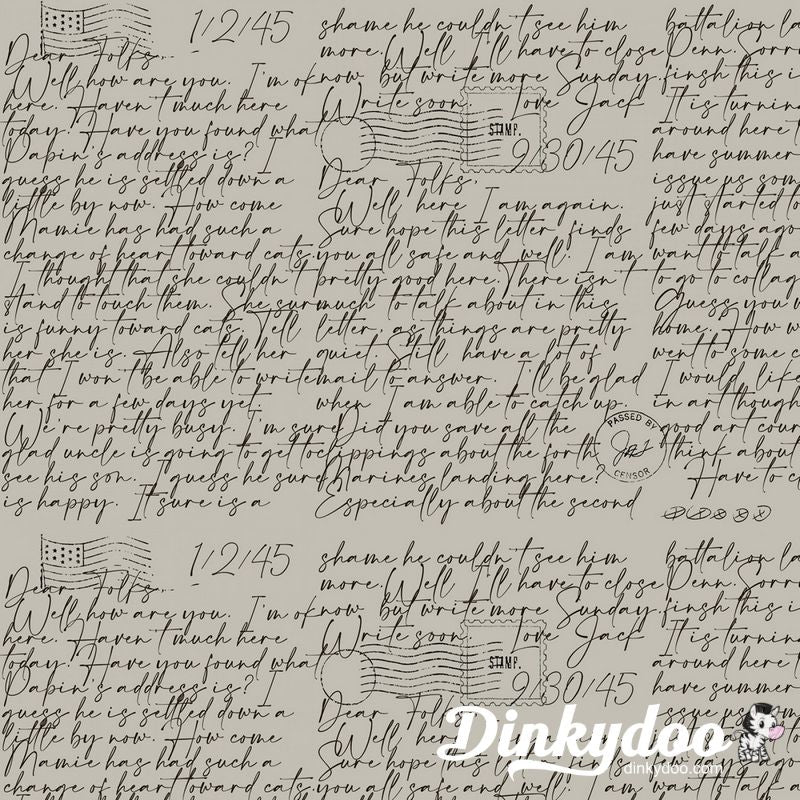 1/2/45
Dear Folks,
Well, how are you. I'm ok
here. Haven't much here
today. Have you found what
Papin's address is? I
guess he is settled down a
little by now. How come
Mamie has had such a
change of heart toward cats.
I thought that she couldn't
stand to touch them. She sure
is funny toward cats. Tell
her she is. Also tell her
that I won't be able to write
her for a few days yet.
We're pretty busy. I'm sure
glad uncle is going to get to
see his son. I guess he sure
is happy. It sure is a
shame he couldn't see him
more. Well I'll have to close
now but write more Sunday.
Write soon. Love Jack
STAMP.
9/30/45
Dear Folks,
Well here I am again.
Sure hope this letter finds
you all safe and well. I am
pretty good here. There isn't
much to talk about in this
letter, as things are pretty
quiet. Still have a lot of
mail to answer. I'll be glad
when I am able to catch up.
Did you save all the
clippings about the forth
Marines landing here?
Especially about the second
battalion la
Penn. Sorry
finsh this i
It is turnin
around here t
have summer
issue us som
just started to
few days ago
want to talk a
to go to collag
Guess you w
home. How w
went to some c
I would like
in art though
good art cour
think about
Have to cl
PASSED BY
CENSOR
1/2/45
Dear Folks,
Well, how are you. I'm ok
here. Haven't much here
today. Have you found what
Papin's address is? I
guess he is settled down a
little by now. How come
Mamie has had such a
change of heart toward cats.
shame he couldn't see him
more. Well I'll have to close
now but write more Sunday.
Write soon. Love Jack
STAMP.
9/30/45
Dear Folks,
Well here
Sure hope this
you all safe and well. I am
battalion la
Penn. Sorry
finsh this i
It is turnin
around here t
have summer
issue us som
want to talk a
Dinkydoo
dinkydoo.com